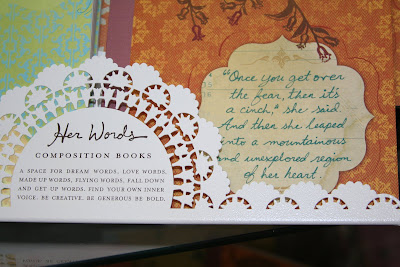 Her Words
COMPOSITION BOOKS
A SPACE FOR DREAM WORDS, LOVE WORDS,
MADE UP WORDS, FLYING WORDS, FALL DOWN
AND GET UP WORDS. FIND YOUR OWN INNER
VOICE. BE CREATIVE. BE GENEROUS BE BOLD.
"Once you get over
the fear, then it's
a cinch," she said.
And then she leaped
into a mountainous
and unexplored region
of her heart.